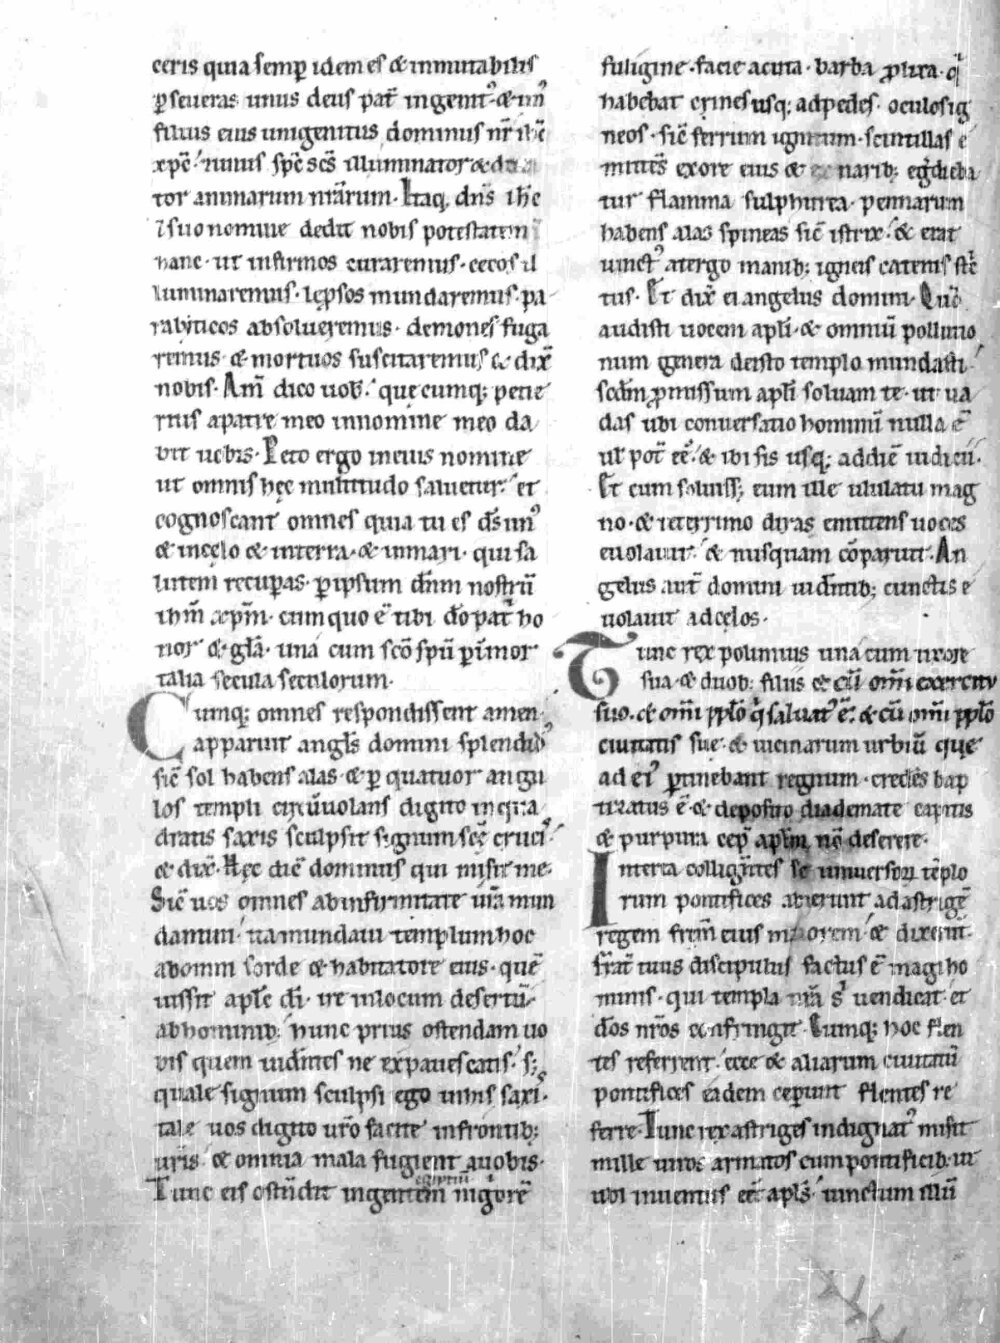 ceris quia semꝑ idem es & inmutabilis
ꝑseueras unus deus pat̄ ingenit᾽ & un᾽
filius eius unigenitus dominus nr̄ ihc̄
xpc̄ ̛ unus spc̄ scs̄ illuminator &
tor animarum nr̄arum. Itaq, dn̄s ihc̄
ī suo nomine dedit nobis potestatem
hanc. ut infirmos curaremus. cecos il
luminaremus. lęprosos mundaremus. pa
rabiticos absolueremus. demones fuga
remus & mortuos suscitaremus & dix̄
nobis. Am̄ dico uob᾽. quęcumq; petie
ritis apatre meo innomine meo da
bit uobis. Peto ergo ineius nomine
ut omnis hęc multitudo saluetur. et
cognoscant omnes quia tu es ds̄ un᾽
& incęlo & interra. & inmari. qui sa
lutem recupas. ꝑipsum dn̄m nostrū
ihm̄ xpm̄. cum quo ē tibi dō pat̄ ho
nor & glā. una cum scō spū ꝑinmor
talia secula seculorum.
Cumq; omnes respondissent amen.
apparuit angl̄s domini splendid᾽
sic̄ sol habens alas. & ꝑ quatuor angu
los templi circūuolans digito inqua
dratis saxis sculpsit signum scę̄ cruci᾽
& dix̄. Hęc dic̄ dominus qui misit me.
Sic̄ uos omnes abinfirmitate ur̄a mun
daui. ita mundaui templum hoc
abomni sorde & habitatore eius. quē
iussit apl̄s di᾽. ut inlocum desertū
abhominib; hunc prius ostendam uo
bis quem uidn̄tes ne expauescatis. s;
quale signum sculpsi ego inhis saxi.
tale uos digito ur̄o facite infrontib;
uris & omnia mala fugient auobis.
egiptiū
Tunc eis ostn̄dit ingentem nigorē
fuligine. facie acuta. barba ꝓlixa. q᾽
habebat crines usq; adpedes. oculos ig
neos. sic̄ ferrum ignitum. scintillas e
mittēs exore eius & ex narib; eg̊dieba
tur flamma sulphurea. pennarum
habens alas spineas sic̄ istrix. & erat
uinct᾽ atergo manib; igneis catenis str̄c
tus. Et dix̄ ei angelus domini. Qm̄
audisti uocem apl̄i. & omniū pollutio
num genera deisto templo mundasti.
scdm̄ ꝓmissum apl̄i soluam te. ut ua
das ubi conuersatio hominū nulla ē
ul̄ pot̄ eē. & ibi sis usq; addiē iudicii.
Et cum soluiss; eum ille ululatu mag
no. & teterrimo diras emittens uoces
euolauit. & nusquam cōparuit. An
gelus aut̄ domini uidn̄tib; cunctis e
uolauit ad cęlos.
Tunc rex polimius una cum uxore
sua. & duob; filiis & cū om̄i exercitu
suo. & om̄i ꝓplo q᾽ saluat᾽ ē. & cū om̄i ꝓplo
ciuitatis suę. & uicinarum urbiū quę
ad ei᾽ ꝑtinebant regnum. credēs bap
tizatus ē. & deposito diademate capitis
& purpura cep̄ apl̄m nō deserere.
Interea collign̄tes se uniuersoꝝ tēplo
rum pontifices abierunt ad astrigē
regem frem̄ eius maiorem & dixerunt.
frat̄ tuus discipulus factus ē magi ho
minis. qui templa nr̄a s᾽ uendicat. et
dōs nr̄os confringit. Cumq; hoc flen
tes referrent. ecce & aliarum ciuitatū
pontifices eadem ceperunt flentes re
ferre. Tunc rex astriges indignat᾽ misit
mille uiros armatos cum pontificib; ut
ubi inuentus eēt apl̄s ̛ uinctum illū